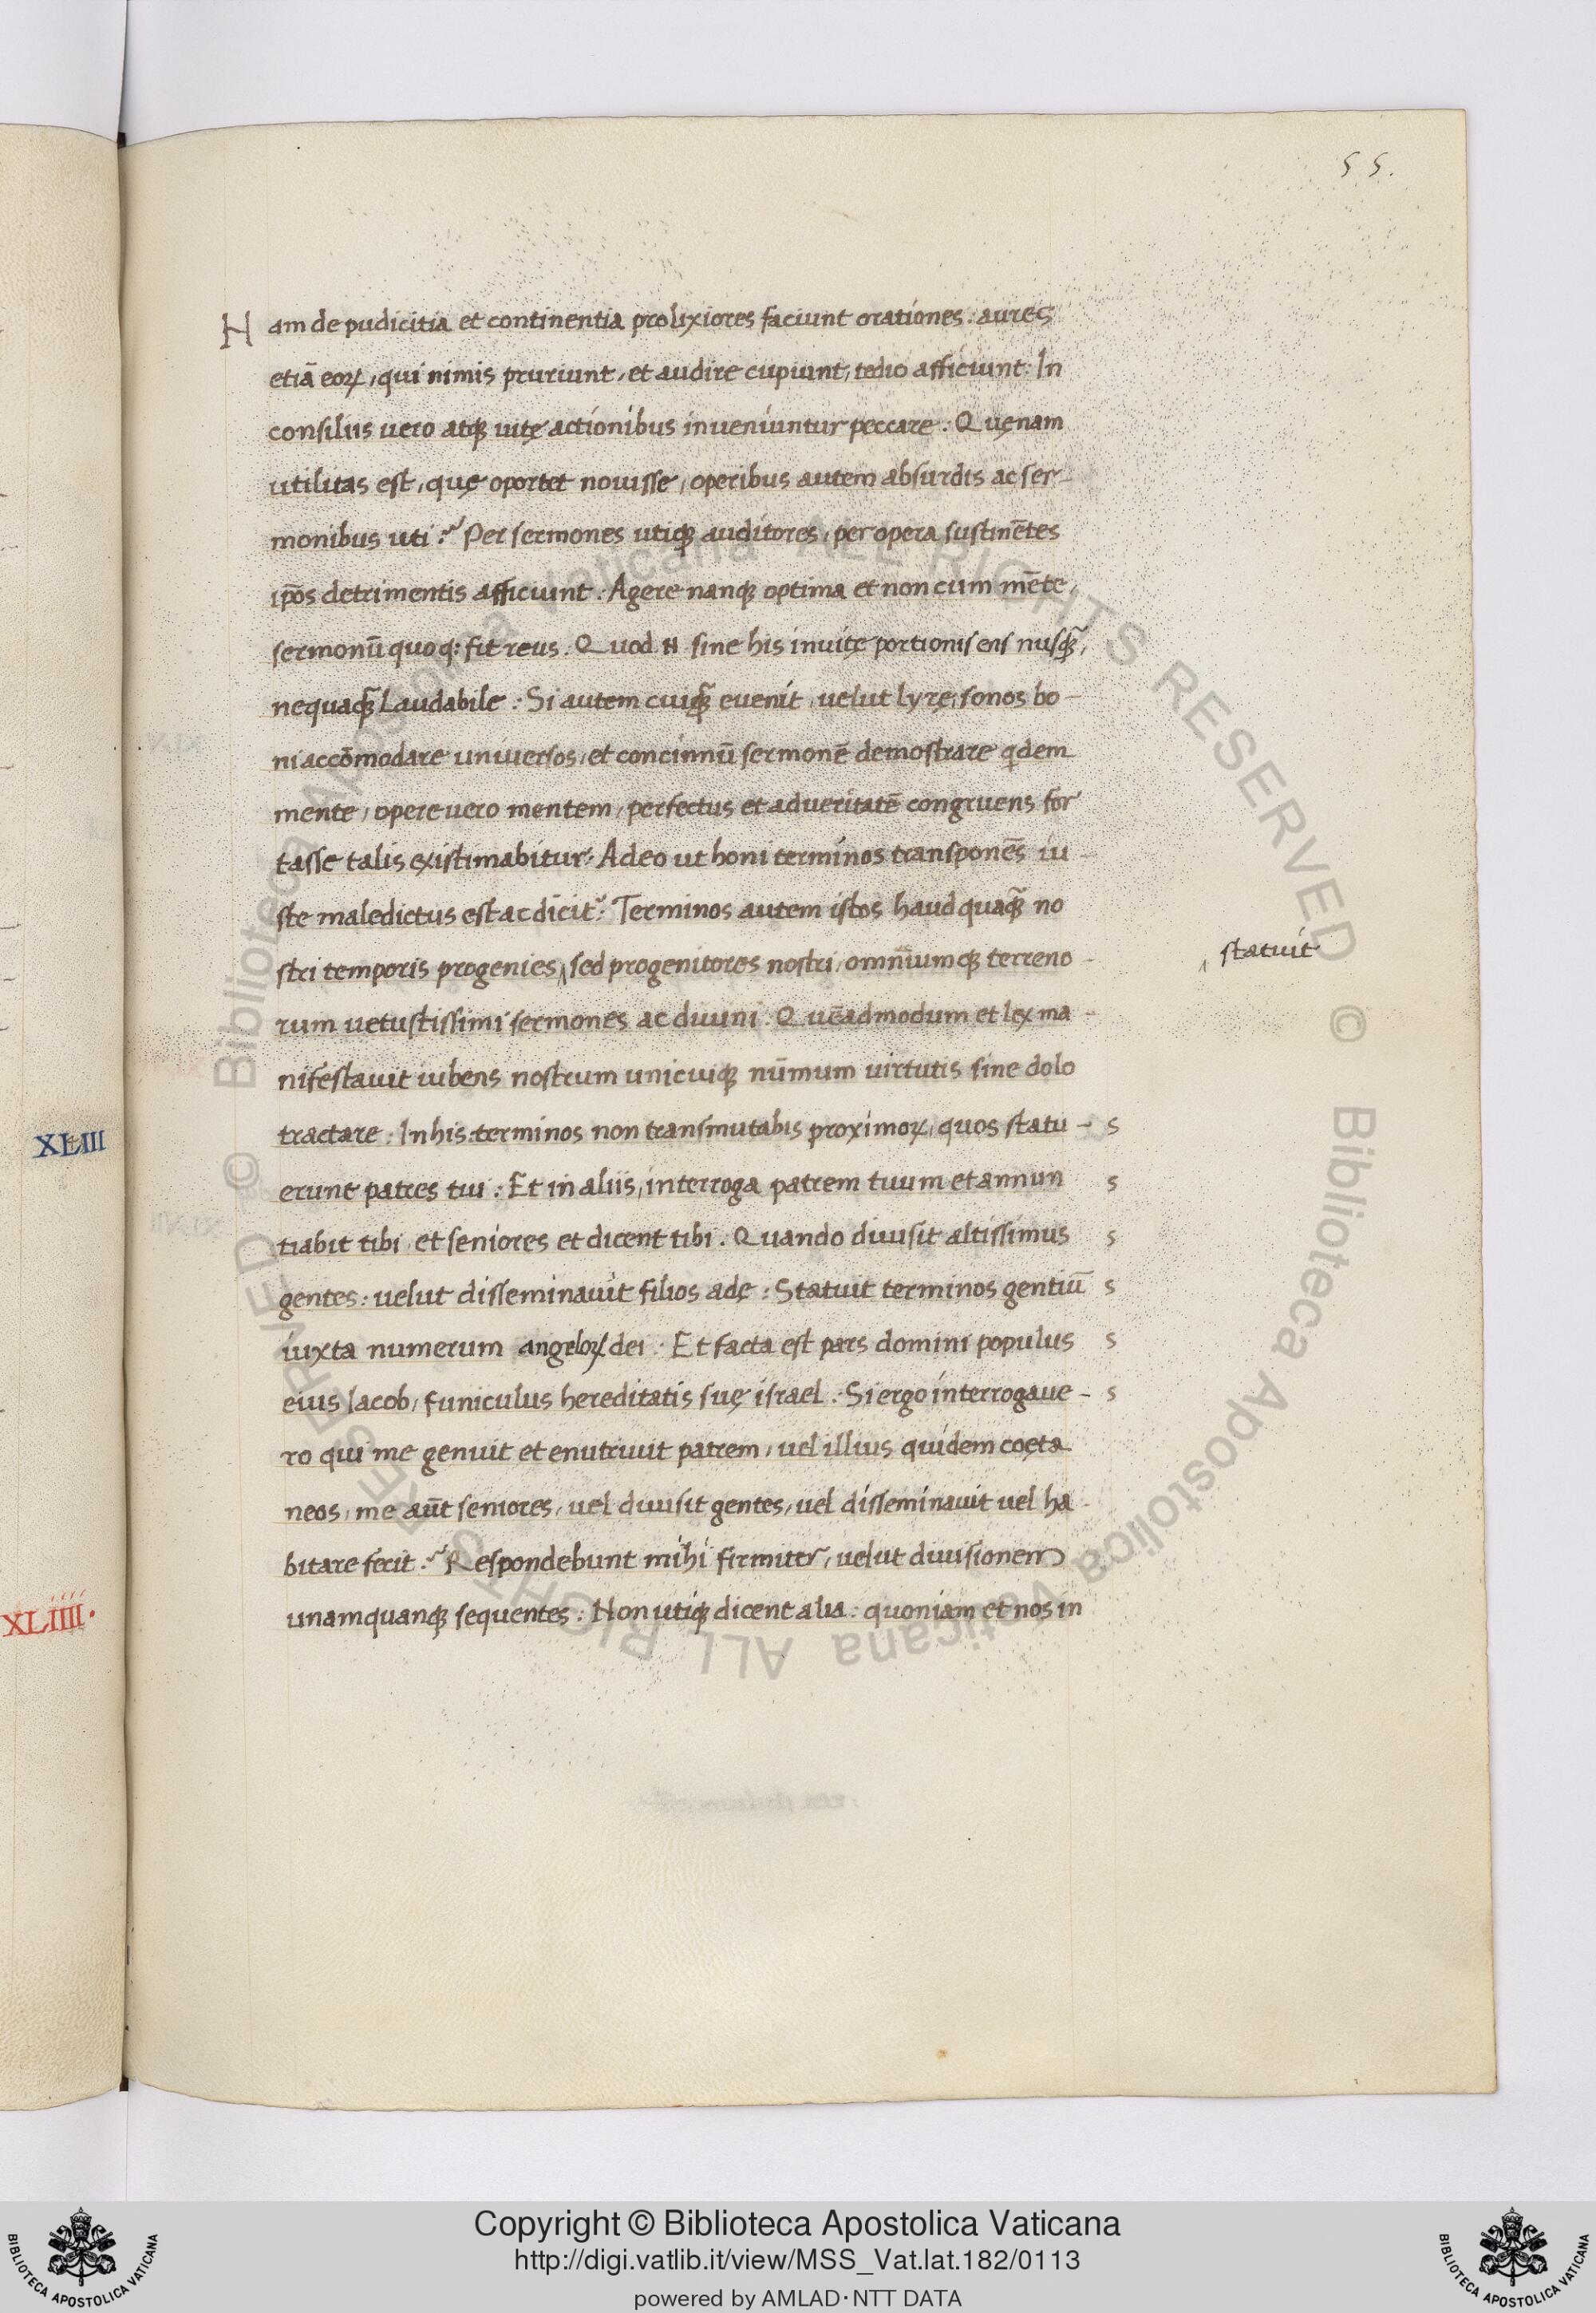 55.
Nam de pudicitia et continentia prolixiores faciunt orationes: aures
etiā eoꝝ, qui nimis pruriunt, et audire cupiunt, tedio afficiunt: In
consiliis uero atqꝫ uitę actionibus inueniuntur peccare: Quęnam
utilitas est, quę oportet nouisse, operibus autem absurdis ac ser-
monibus uti? Per sermones utiqꝫ auditores, per opera sustinētes
ip̄os detrimentis afficiunt: Agere nanqꝫ optima et non cum mēte,
sermonū quoq: fit reus. Quod N sine his in uitę portionis ens nusqꝫ̃,
nequaqꝫ̃ Laudabile: Si autem cuiqꝫ̃ euenit, uelut lyrę, sonos bo-
ni accōmodare uniuersos, et concinnū sermonē demostrare qdem
mente, opere uero mentem, perfectus et ad ueritatē congruens for
tasse talis existimabitur: Adeo ut boni terminos transponēs iu-
ste maledictus est ac dicit᷑: Terminos autem istos haud quaqꝫ̃ no
stri temporis progenies, sed progenitores nostri, omniumqꝫ terreno-
statuit
rum uetustissimi sermones ac diuini. Quēadmodum et lex ma-
nifestauit iubens nostrum unicuiqꝫ nūmum uirtutis sine dolo
tractare: In his: terminos non transmutabis proximoꝝ, quos statu- s
erunt patres tui: Et in aliis, interroga patrem tuum et annun s
tiabit tibi, et seniores et dicent tibi. Quando diuisit altissimus s
gentes: uelut disseminauit filios adę: Statuit terminos gentiū s
iuxta numerum angeloꝝ dei: Et facta est pars domini populus s
eius Iacob, funiculus hereditatis suę israel: Si ergo interrogaue- s
ro qui me genuit et enutriuit patrem, uel illius quidem coęta
neos, me aūt seniores, uel diuisit gentes, uel disseminauit uel ha-
bitare fecit? Respondebunt mihi firmiter, uelut diuisionem
unamquanqꝫ sequentes: Non utiqꝫ dicent alia: quoniam et nos in
XLIII
XLIIII.
Copyright © Biblioteca Apostolica Vaticana
http://digi.vatlib.it/view/MSS_Vat.lat.182/0113
powered by AMLAD·NTT DATA
BIBLIOTECA APOSTOLICA VATICANA
BIBLIOTECA APOSTOLICA VATICANA
© Biblioteca Apostolica Vaticana ALL RIGHTS RESERVED © Biblioteca Apostolica Vaticana ALL RIGHTS RESERVED